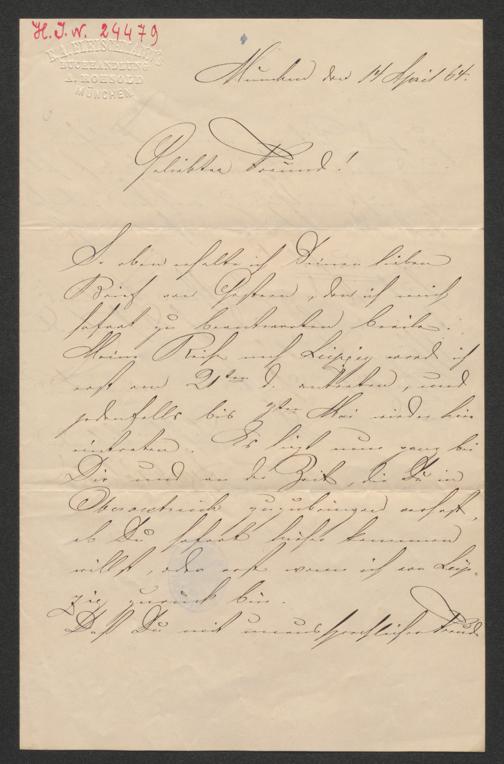 H. I. N. 24479
BUCHHANDLUNG
A. ROHSOLD
MÜNCHEN
München den 14 April 64.
Geliebter Freund!
So eben erhalte ich Deinen lieben
Brief von Gestern, den ich mich
sofort zu beantworten beeile.
Meine Reise nach Leipzig werd ich
erst am 21ten d. antreten, und
jedenfalls bis 7ten Mai wieder hier
eintreten. Es liegt nun ganz bei
Dir und an der Zeit, die Du in
zuzubringen
ob Du sofort hieher kommen
willst, oder erst wenn ich von Leip-
zig zurück bin.
Daß Du mit unaussprechlicher Freude